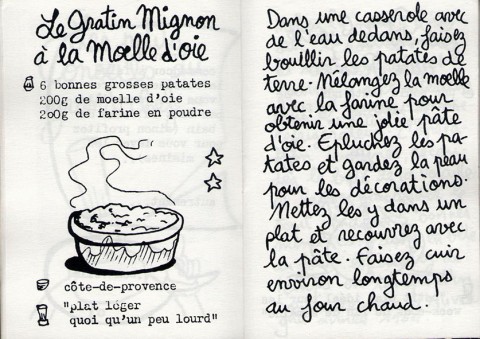 Le Gratin Mignon
à la Moelle d'oie
6 bonnes grosses patates
200g de moelle d'oie
2o0g de farine en poudre
côte-de-provence
"plat léger
quoi qu'un peu lourd"
Dans une casserole avec
de l'eau dedans, faisez
bouillir les patates de
terre. Mélangez la moelle
avec la farine pour
obtenir une jolie pâte
d'oie. Epluchez les pa-
tates et gardez la peau
pour les décorations.
Mettez les y dans un
plat et recouvrez avec
la pâte. Faisez cuir
environ longtemps
au four chaud.